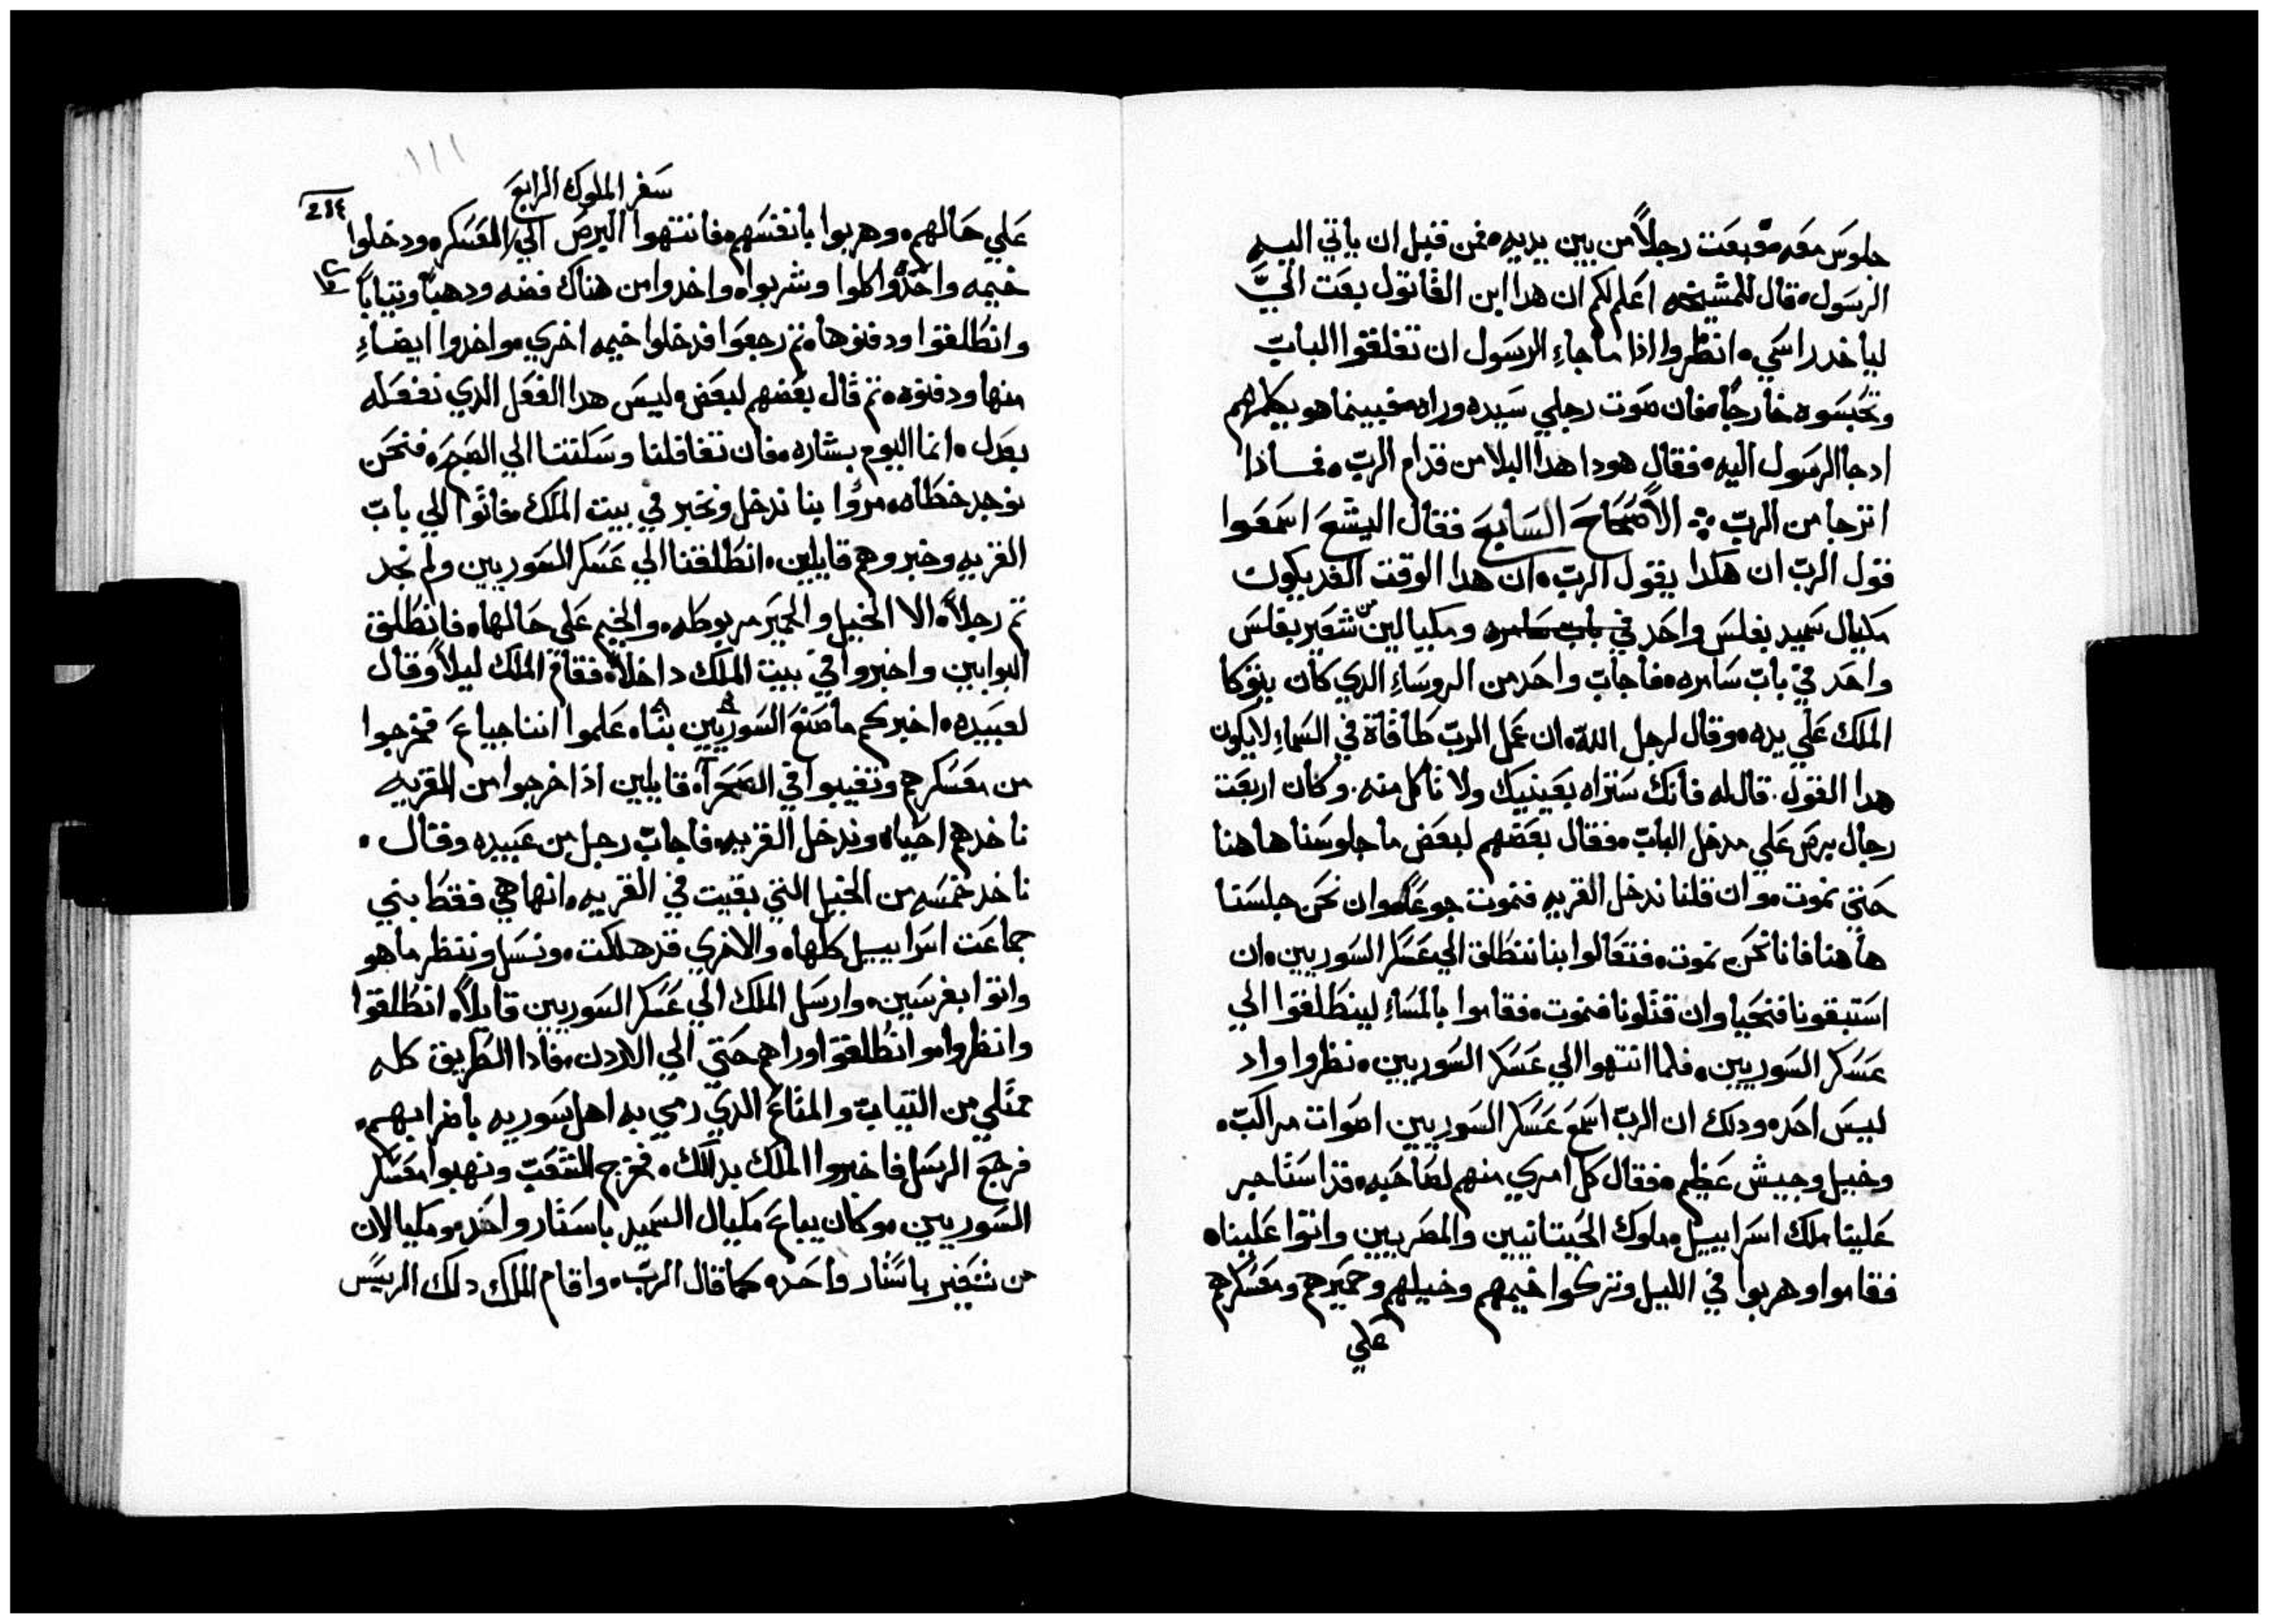 جلوس معه فبعت رجلاً من بين يديه فمن قبل ان ياتي اليه
الرسول قال للمشيخه اعلمكم ان هدا ابن القاتول بعت اليَّ
لياخد راسي انظروا اذا ما جاء الرسول ان تغلقوا الباب
وتحبسوه خارجاً فان صوت رجلي سيده وراه فبينما هو يكلمهم
ادجا الرسول اليه فقال هودا هدا البلا من قدام الرب فمادا
اترجا من الرب الاصحاح السابع فقال اليشع اسمعوا
قول الرب ان هكدا يقول الرب ان هدا الوقت الغد يكون
مكيال سميد بفلس واحد في باب سامره ومكيالين من شعير بفلس
واحد في باب سامره فاجاب واحد من الروساء الدي كان يتوكا
الملك علي يده وقال لرجل الله ان عمل الرب طاقاة في السماء لا يكون
هدا القول قال له فانك ستراه بعينيك ولا تاكل منه وكان اربعت
رجال برص علي مدخل الباب فقال بعضهم لبعض ما جلوسنا هاهنا
حتي نموت وان قلنا ندخل القريه فنموت جوعاً وان نحن جلسنا
هاهنا فانا نحن نموت فتعالوا بنا ننطلق الي عسكر السوريين ان
استبقونا فنحيا وان قتلونا فنموت فقاموا بالمساء لينطلقوا الي
عسكر السوريين فلما انتهوا الي عسكر السوريين نظروا واد
ليس احد ودلك ان الرب اسمع عسكر السوريين اصوات مراكب
وخيل وجيش عظيم فقال كل امري منهم لصاحبه قد استاجر
علينا ملك اسراييل ملوك الحيتانيين والمصريين واتوا علينا
فقاموا وهربوا في الليل وتركوا خيمهم وخيلهم وحميرهم ومعسكرهم
علي
سفر الملوك الرابع
214
علي حالهم وهربوا بانفسهم فانتهوا البرص الي المعسكر ودخلوا
خيمه واحده واكلوا وشربوا واخدوا من هناك فضه ودهباً وتياباً
وانطلقوا ودفنوها تم رجعوا فدخلوا خيمه اخري واخدوا ايضاء
منها ودفنوه تم قال بعضهم لبعض ليس هدا الفعل الدي نفعله
بعدل انما اليوم بشاره فان تغافلنا وسكتنا الي الصبح فنحن
نوجد خطاه مروا بنا ندخل ونخبر في بيت الملك فاتوا الي باب
القريه وخبروهم قايلين انطلقنا الي عسكر السوريين ولم نجد
تم رجلاً الا الخيل والحمير مربوطه والخيم علي حالها فانطلق
البوابين واخبروا في بيت الملك داخلاً فقام الملك ليلاً وقال
لعبيده اخبركم ما صنع السوريين بنا علموا اننا جياع فخرجوا
من معسكرهم وتغيبوا في الصحرآ قايلين اذا خرجوا من القريه
ناخدهم احيا وندخل القريه فاجاب رجل من عبيده وقال
ناخد خمسه من الخيل التي بقيت في القريه انها هي فقط بني
جماعت اسراييل كلها والاخري قد هلكت ونرسل وننظر ما هو
واتوا بفرسين وارسل الملك الي عسكر السوريين قايلاً انطلقوا
وانظروا وانطلقوا وراهم حتي الي الاردن فادا الطريق كله
ممتلي من التياب والمتاع الدي رمي به اهل سوريه باضرابهم
فرجع الرسل فاخبروا الملك بدلك فخرج الشعب ونهبوا معسكر
السوريين وكان يباع مكيال السميد باستار واحد ومكيالان
من شعير باستار واحد كما قال الرب واقام الملك دلك الريس